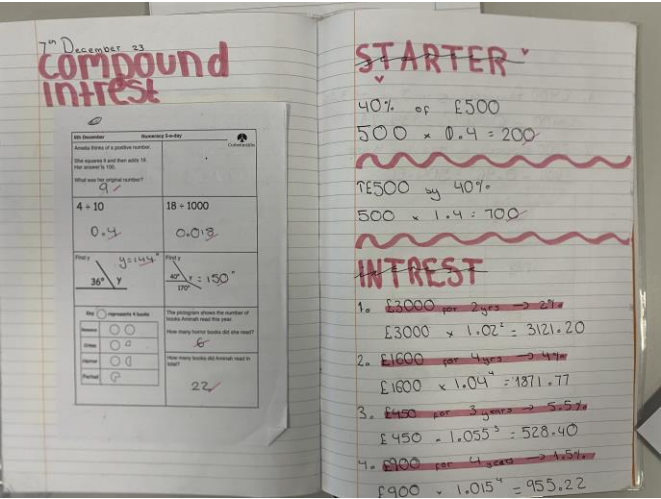 7th December 23
Compound
Intrest
6th December Numeracy 5-a-day
Corbettmaths
Amelia thinks of a positive number.
She squares it and then adds 19.
Her answer is 100.
What was her original number?
9
4 ÷ 10
18 ÷ 1000
0.4
0.018
Find y
y=144°
36° y
Find y
40° y = 150°
170°
Key represents 4 books
The pictogram shows the number of books Aminah read this year.
How many horror books did she read?
6
Crime
Horror
How many books did Aminah read in total?
22
STARTER
40% of £500
500 x 0.4 = 200
£500 by 40%
500 x 1.4 = 700
INTREST
1. £3000 for 2yrs → 2%
£3000 x 1.02² = 3121.20
2. £1600 for 4yrs → 4%
£1600 x 1.04⁴ = 1871.77
3. £450 for 3 years → 5.5%
£450 x 1.055³ = 528.40
4. £900 for 4 years → 1.5%
£900 x 1.015⁴ = 955.22